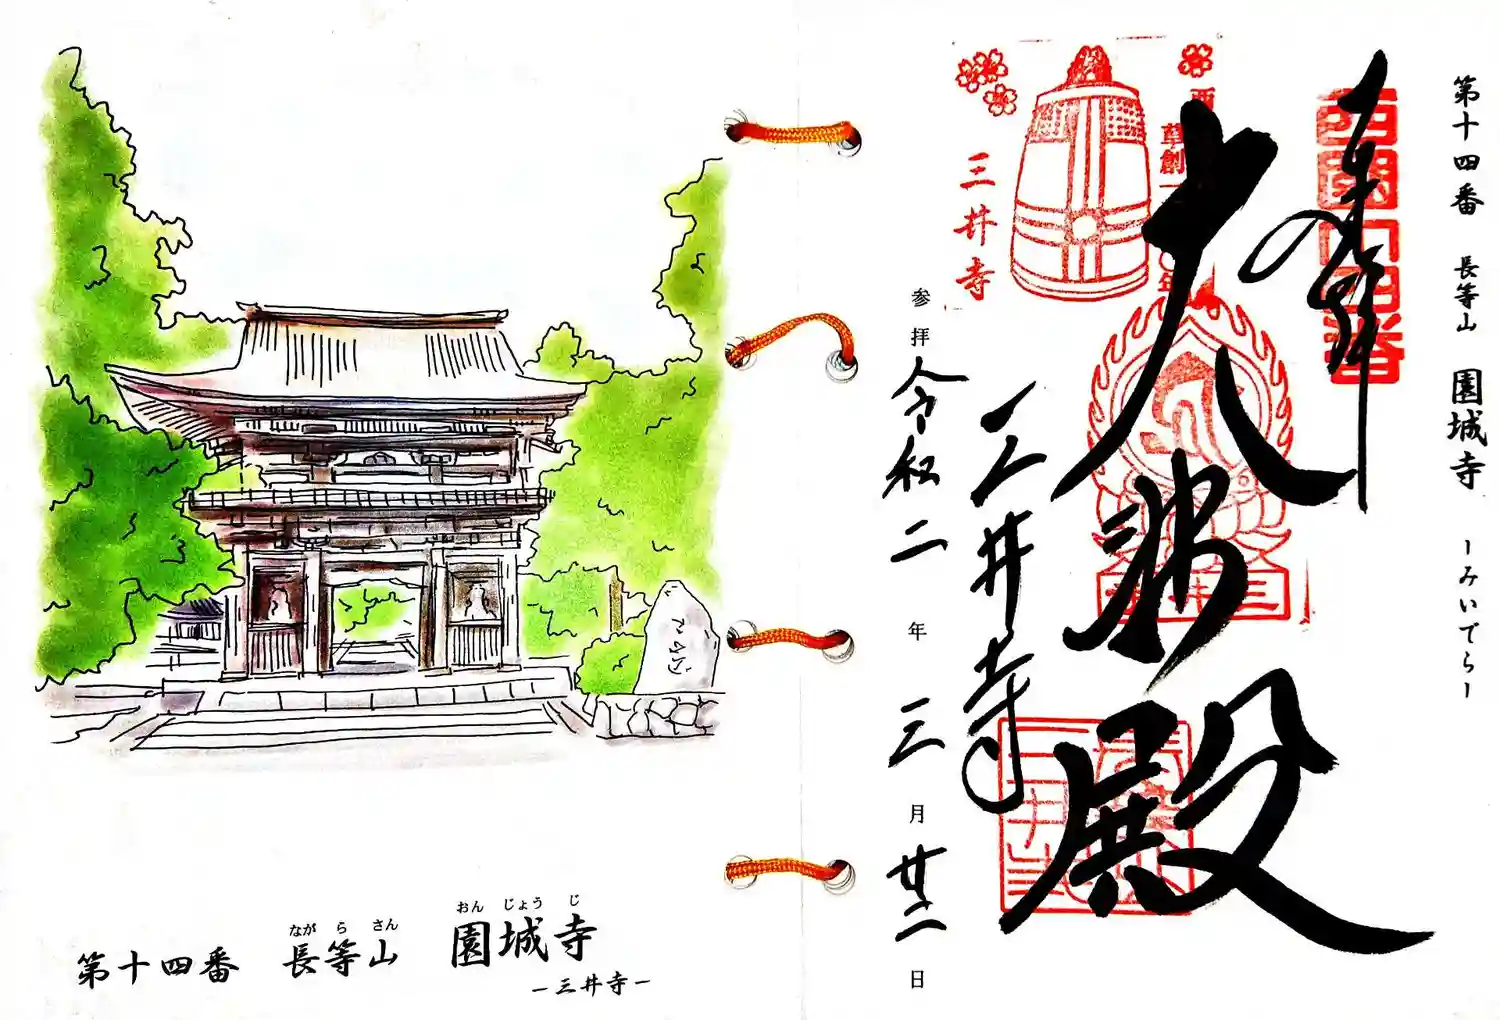 第十四番 長等山 園城寺 ーみいでらー
奉拝
西國十四番
大悲殿
三井寺
三井寺
草創一
参拝 令和二年三月廿二日
ながらさん おんじょうじ
第十四番 長等山 園城寺
ー三井寺ー